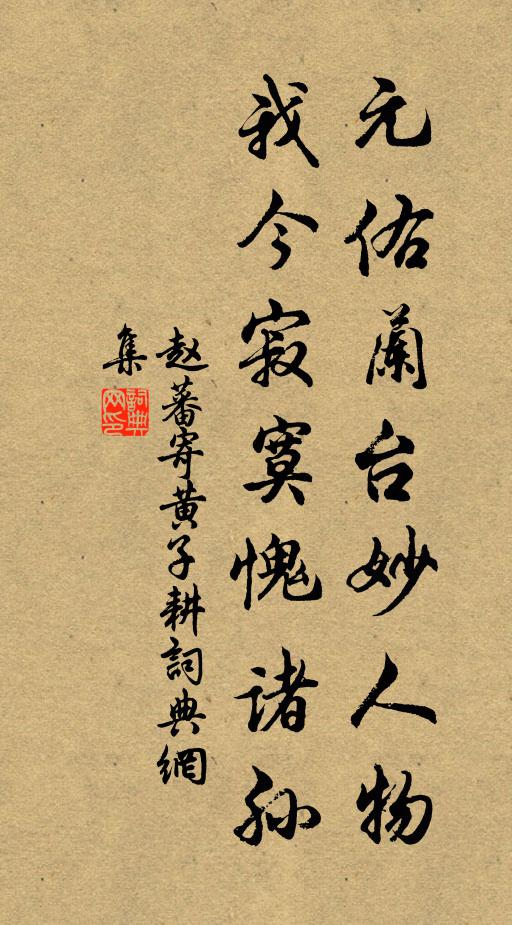 元佑蘭台妙人物
我今寂寞愧诸孙
赵蕃寄黄子耕詞典網
集
詞典
网印